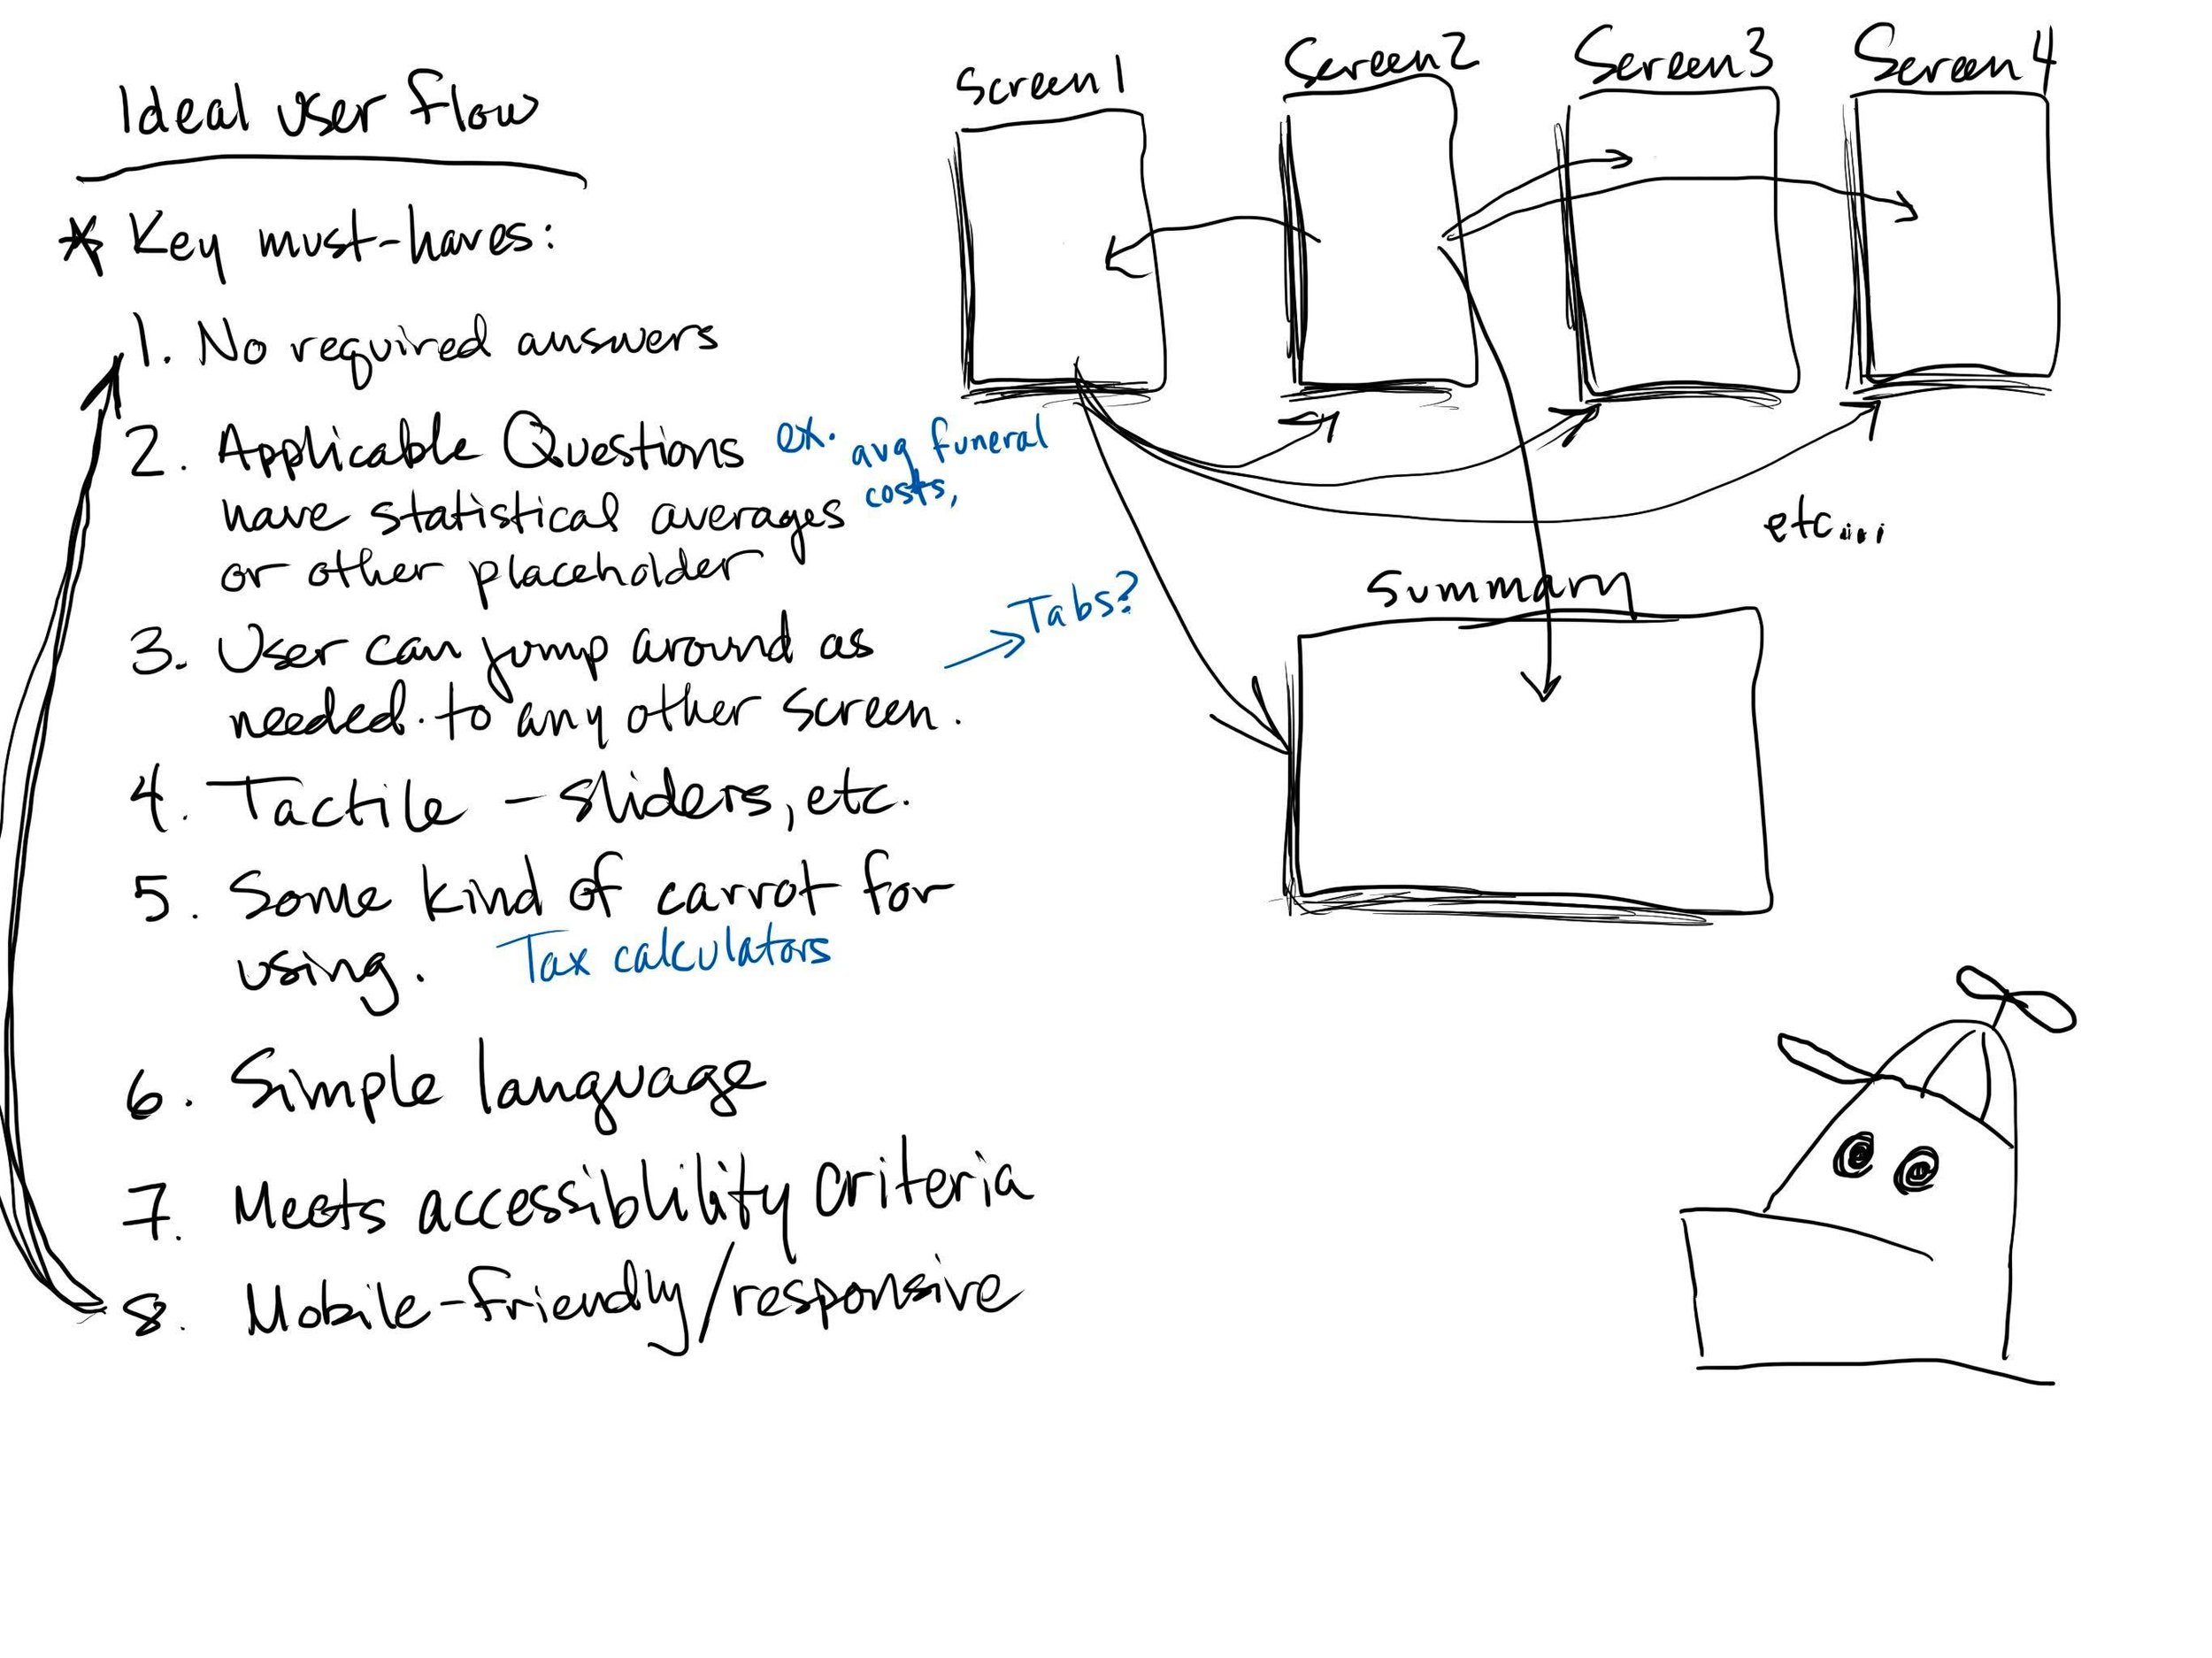 Ideal User Flow
* Key must-haves:
1. No required answers
2. Applicable Questions ex. avg funeral
have statistical averages costs,
or other placeholder
3. User can jump around as → Tabs?
needed. to any other screen.
4. Tactile - sliders, etc.
5. Some kind of carrot for
using. Tax calculators
6. Simple language
7. Meets accessiblility criteria
8. Mobile-friendly/responsive
Screen 1
Screen 2
Screen 3
Screen 4
etc....
Summary